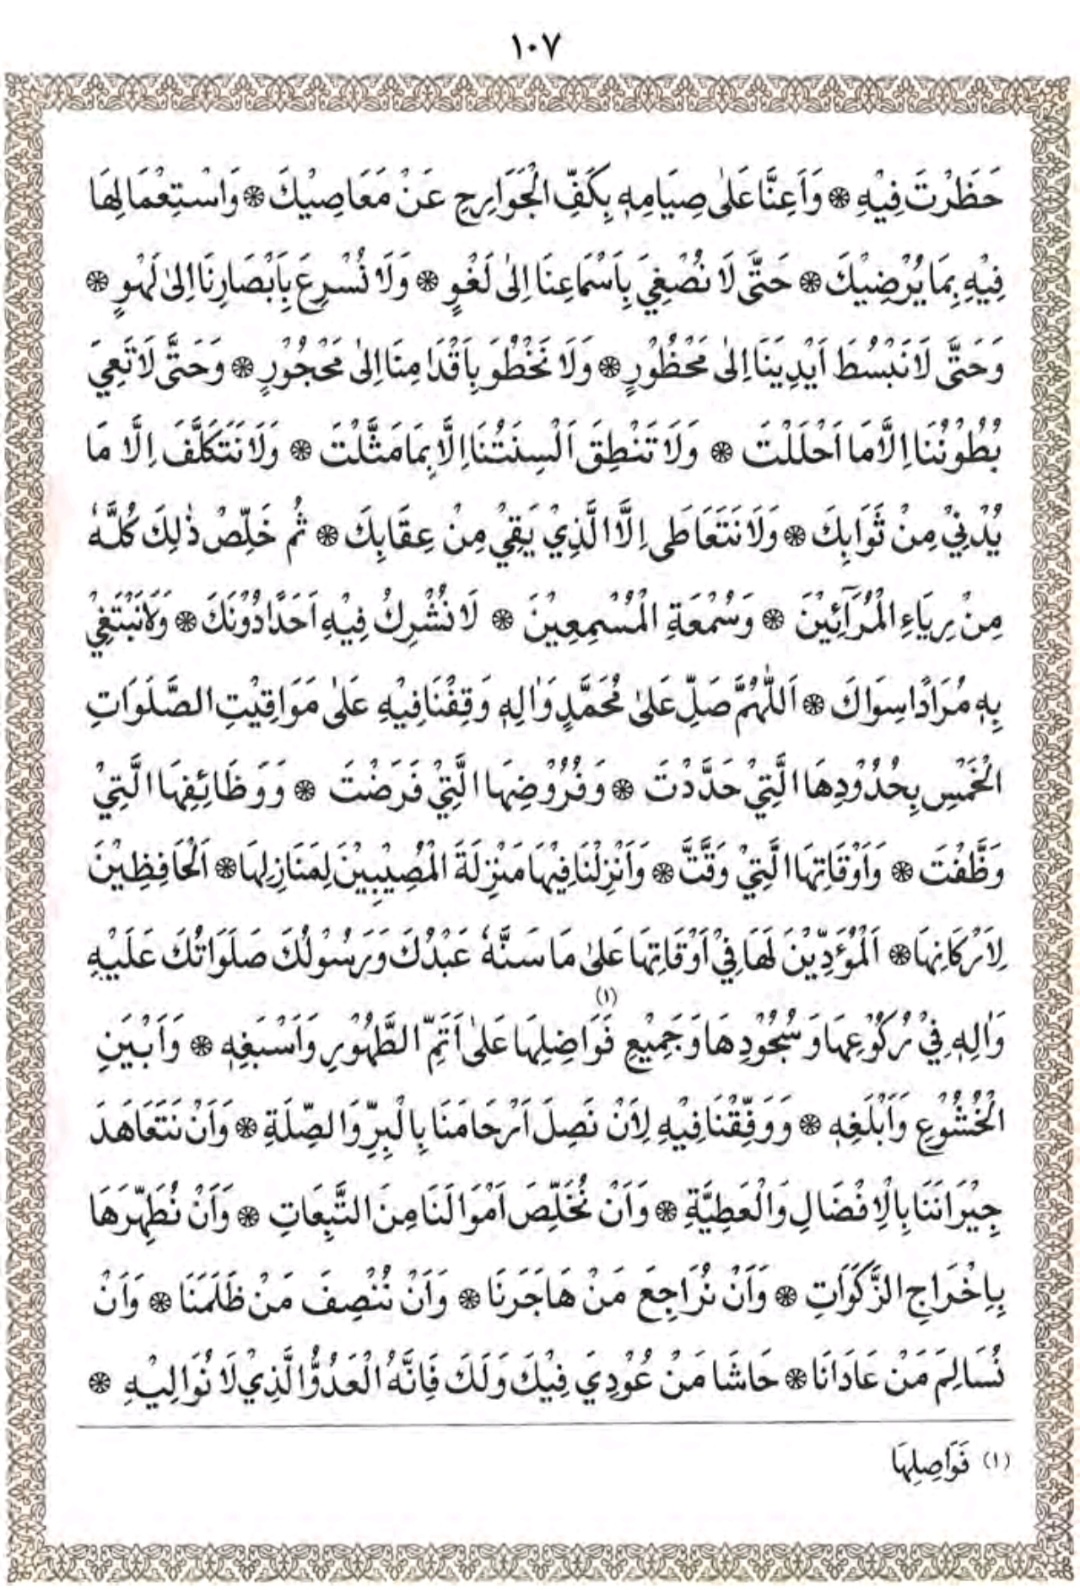 ١٠٧
حَظَرْتَ فِيْهِ ❊ وَاَعِنَّا عَلٰى صِيَامِهٖ بِكَفِّ الْجَوَارِحِ عَنْ مَعَاصِيْكَ ❊ وَاسْتِعْمَالِهَا
فِيْهِ بِمَا يُرْضِيْكَ ❊ حَتّٰى لَا نُصْغِيَ بِاَسْمَاعِنَا اِلٰى لَغْوٍ ❊ وَلَا نُسْرِعَ بِاَبْصَارِنَا اِلٰى لَهْوٍ ❊
وَحَتّٰى لَا نَبْسُطَ اَيْدِيَنَا اِلٰى مَحْظُوْرٍ ❊ وَلَا نَخْطُوَ بِاَقْدَامِنَا اِلٰى مَحْجُوْرٍ ❊ وَحَتّٰى لَا تَعِيَ
بُطُوْنُنَا اِلَّا مَا اَحْلَلْتَ ❊ وَلَا تَنْطِقَ اَلْسِنَتُنَا اِلَّا بِمَا مَثَّلْتَ ❊ وَلَا نَتَكَلَّفَ اِلَّا مَا
يُدْنِيْ مِنْ ثَوَابِكَ ❊ وَلَا نَتَعَاطٰى اِلَّا الَّذِيْ يَقِيْ مِنْ عِقَابِكَ ❊ ثُمَّ خَلِّصْ ذٰلِكَ كُلَّهٗ
مِنْ رِيَاءِ الْمُرَآئِيْنَ ❊ وَسُمْعَةِ الْمُسْمِعِيْنَ ❊ لَا نُشْرِكُ فِيْهِ اَحَدًا دُوْنَكَ ❊ وَلَا نَبْتَغِيْ
بِهٖ مُرَادًا سِوَاكَ ❊ اَللّٰهُمَّ صَلِّ عَلٰى مُحَمَّدٍ وَاٰلِهٖ وَقِفْنَا فِيْهِ عَلٰى مَوَاقِيْتِ الصَّلَوَاتِ
الْخَمْسِ بِحُدُوْدِهَا الَّتِيْ حَدَّدْتَ ❊ وَفُرُوْضِهَا الَّتِيْ فَرَضْتَ ❊ وَوَظَائِفِهَا الَّتِيْ
وَظَّفْتَ ❊ وَاَوْقَاتِهَا الَّتِيْ وَقَّتَّ ❊ وَاَنْزِلْنَا فِيْهَا مَنْزِلَةَ الْمُصِيْبِيْنَ لِمَنَازِلِهَا ❊ اَلْحَافِظِيْنَ
لِاَرْكَانِهَا ❊ اَلْمُؤَدِّيْنَ لَهَا فِيْ اَوْقَاتِهَا عَلٰى مَا سَنَّهٗ عَبْدُكَ وَرَسُوْلُكَ صَلَوَاتُكَ عَلَيْهِ
وَاٰلِهٖ فِيْ رُكُوْعِهَا وَسُجُوْدِهَا وَجَمِيْعِ فَوَاضِلِهَا (١) عَلٰى اَتَمِّ الطَّهُوْرِ وَاَسْبَغِهٖ ❊ وَاَبْيَنِ
الْخُشُوْعِ وَاَبْلَغِهٖ ❊ وَوَفِّقْنَا فِيْهِ لِاَنْ نَصِلَ اَرْحَامَنَا بِالْبِرِّ وَالصِّلَةِ ❊ وَاَنْ نَتَعَاهَدَ
جِيْرَانَنَا بِالْاِفْضَالِ وَالْعَطِيَّةِ ❊ وَاَنْ نُخَلِّصَ اَمْوَالَنَا مِنَ التَّبِعَاتِ ❊ وَاَنْ نُطَهِّرَهَا
بِاِخْرَاجِ الزَّكَوَاتِ ❊ وَاَنْ نُرَاجِعَ مَنْ هَاجَرَنَا ❊ وَاَنْ نُنْصِفَ مَنْ ظَلَمَنَا ❊ وَاَنْ
نُسَالِمَ مَنْ عَادَانَا ❊ حَاشَا مَنْ عُوْدِيَ فِيْكَ وَلَكَ فَاِنَّهُ الْعَدُوُّ الَّذِيْ لَا نُوَالِيْهِ ❊
(١) فَوَاصِلِهَا